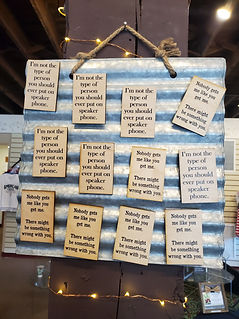 I'm not the
type of
person
you should
ever put on
speaker
phone.
I'm not the
type of
person
you should
ever put on
speaker
phone.
I'm not the
type of
person
you should
ever put on
speaker
phone.
Nobody gets
me like you
get me.
There might
be something
wrong with you.
I'm not the
type of
person
you should
ever put on
speaker
phone.
I'm not the
type of
person
you should
ever put on
speaker
phone.
Nobody gets
me like you
get me.
There might
be something
wrong with you.
I'm not the
type of
person
you should
ever put on
speaker
phone.
Nobody gets
me like you
get me.
There might
be something
wrong with you.
Nobody gets
me like you
get me.
There might
be something
wrong with you.
Nobody gets
me like you
get me.
There might
be something
wrong with you.
Nobody gets
me like you
get me.
There might
be something
wrong with you.